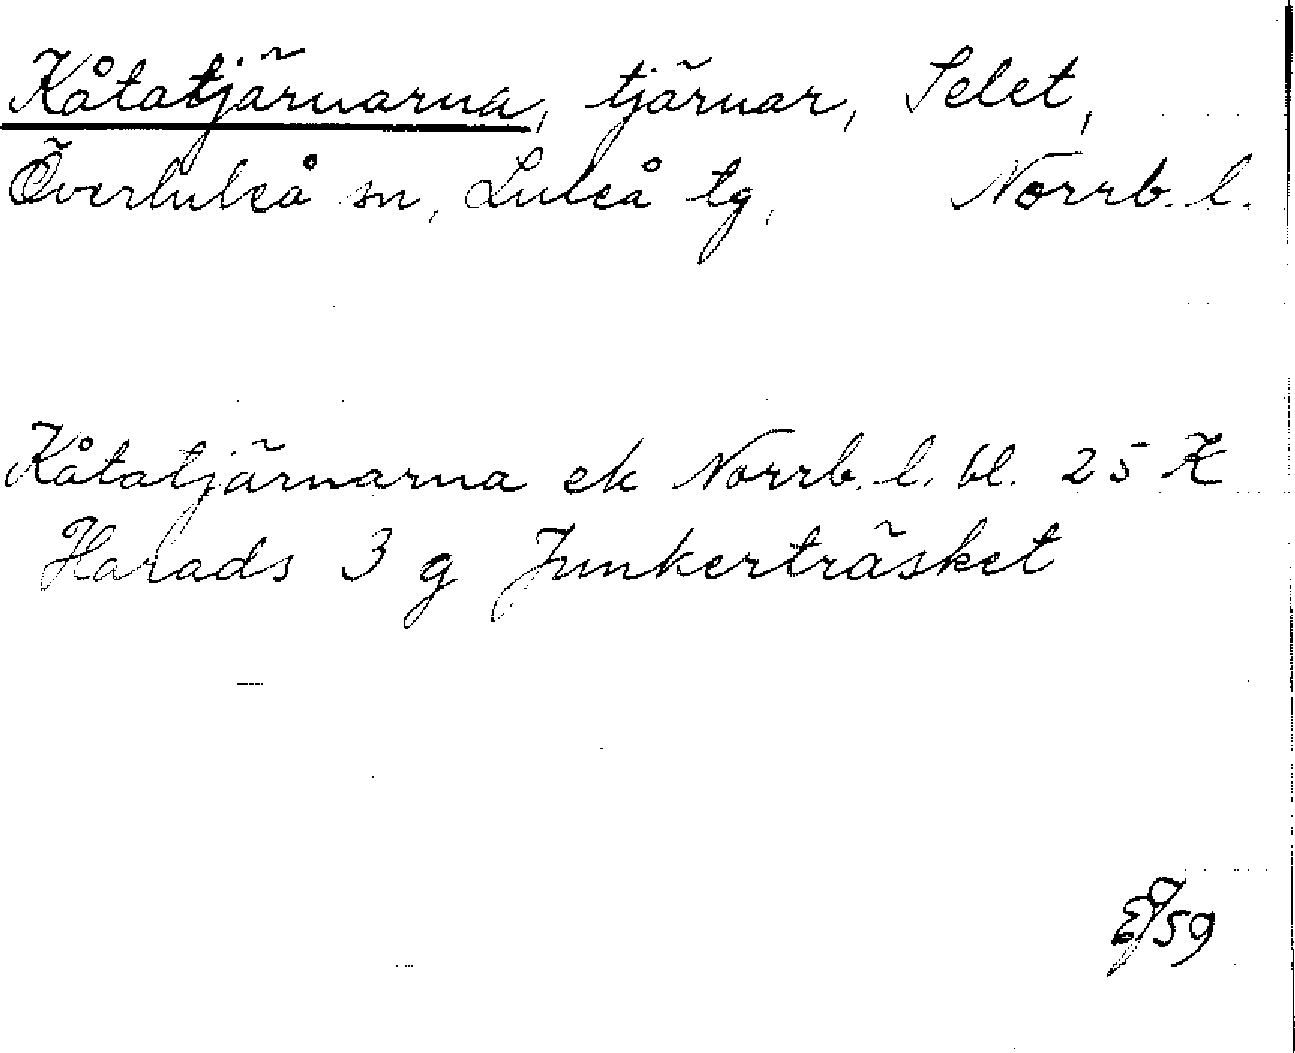 Kåtatjärnarna, tjärnar, Selet,
Överluleå sn, Luleå tg, Norrb. l.
Kåtatjärnarna ek Norrb. l. bl. 25 K
Harads 3 g Junkerträsket
/59